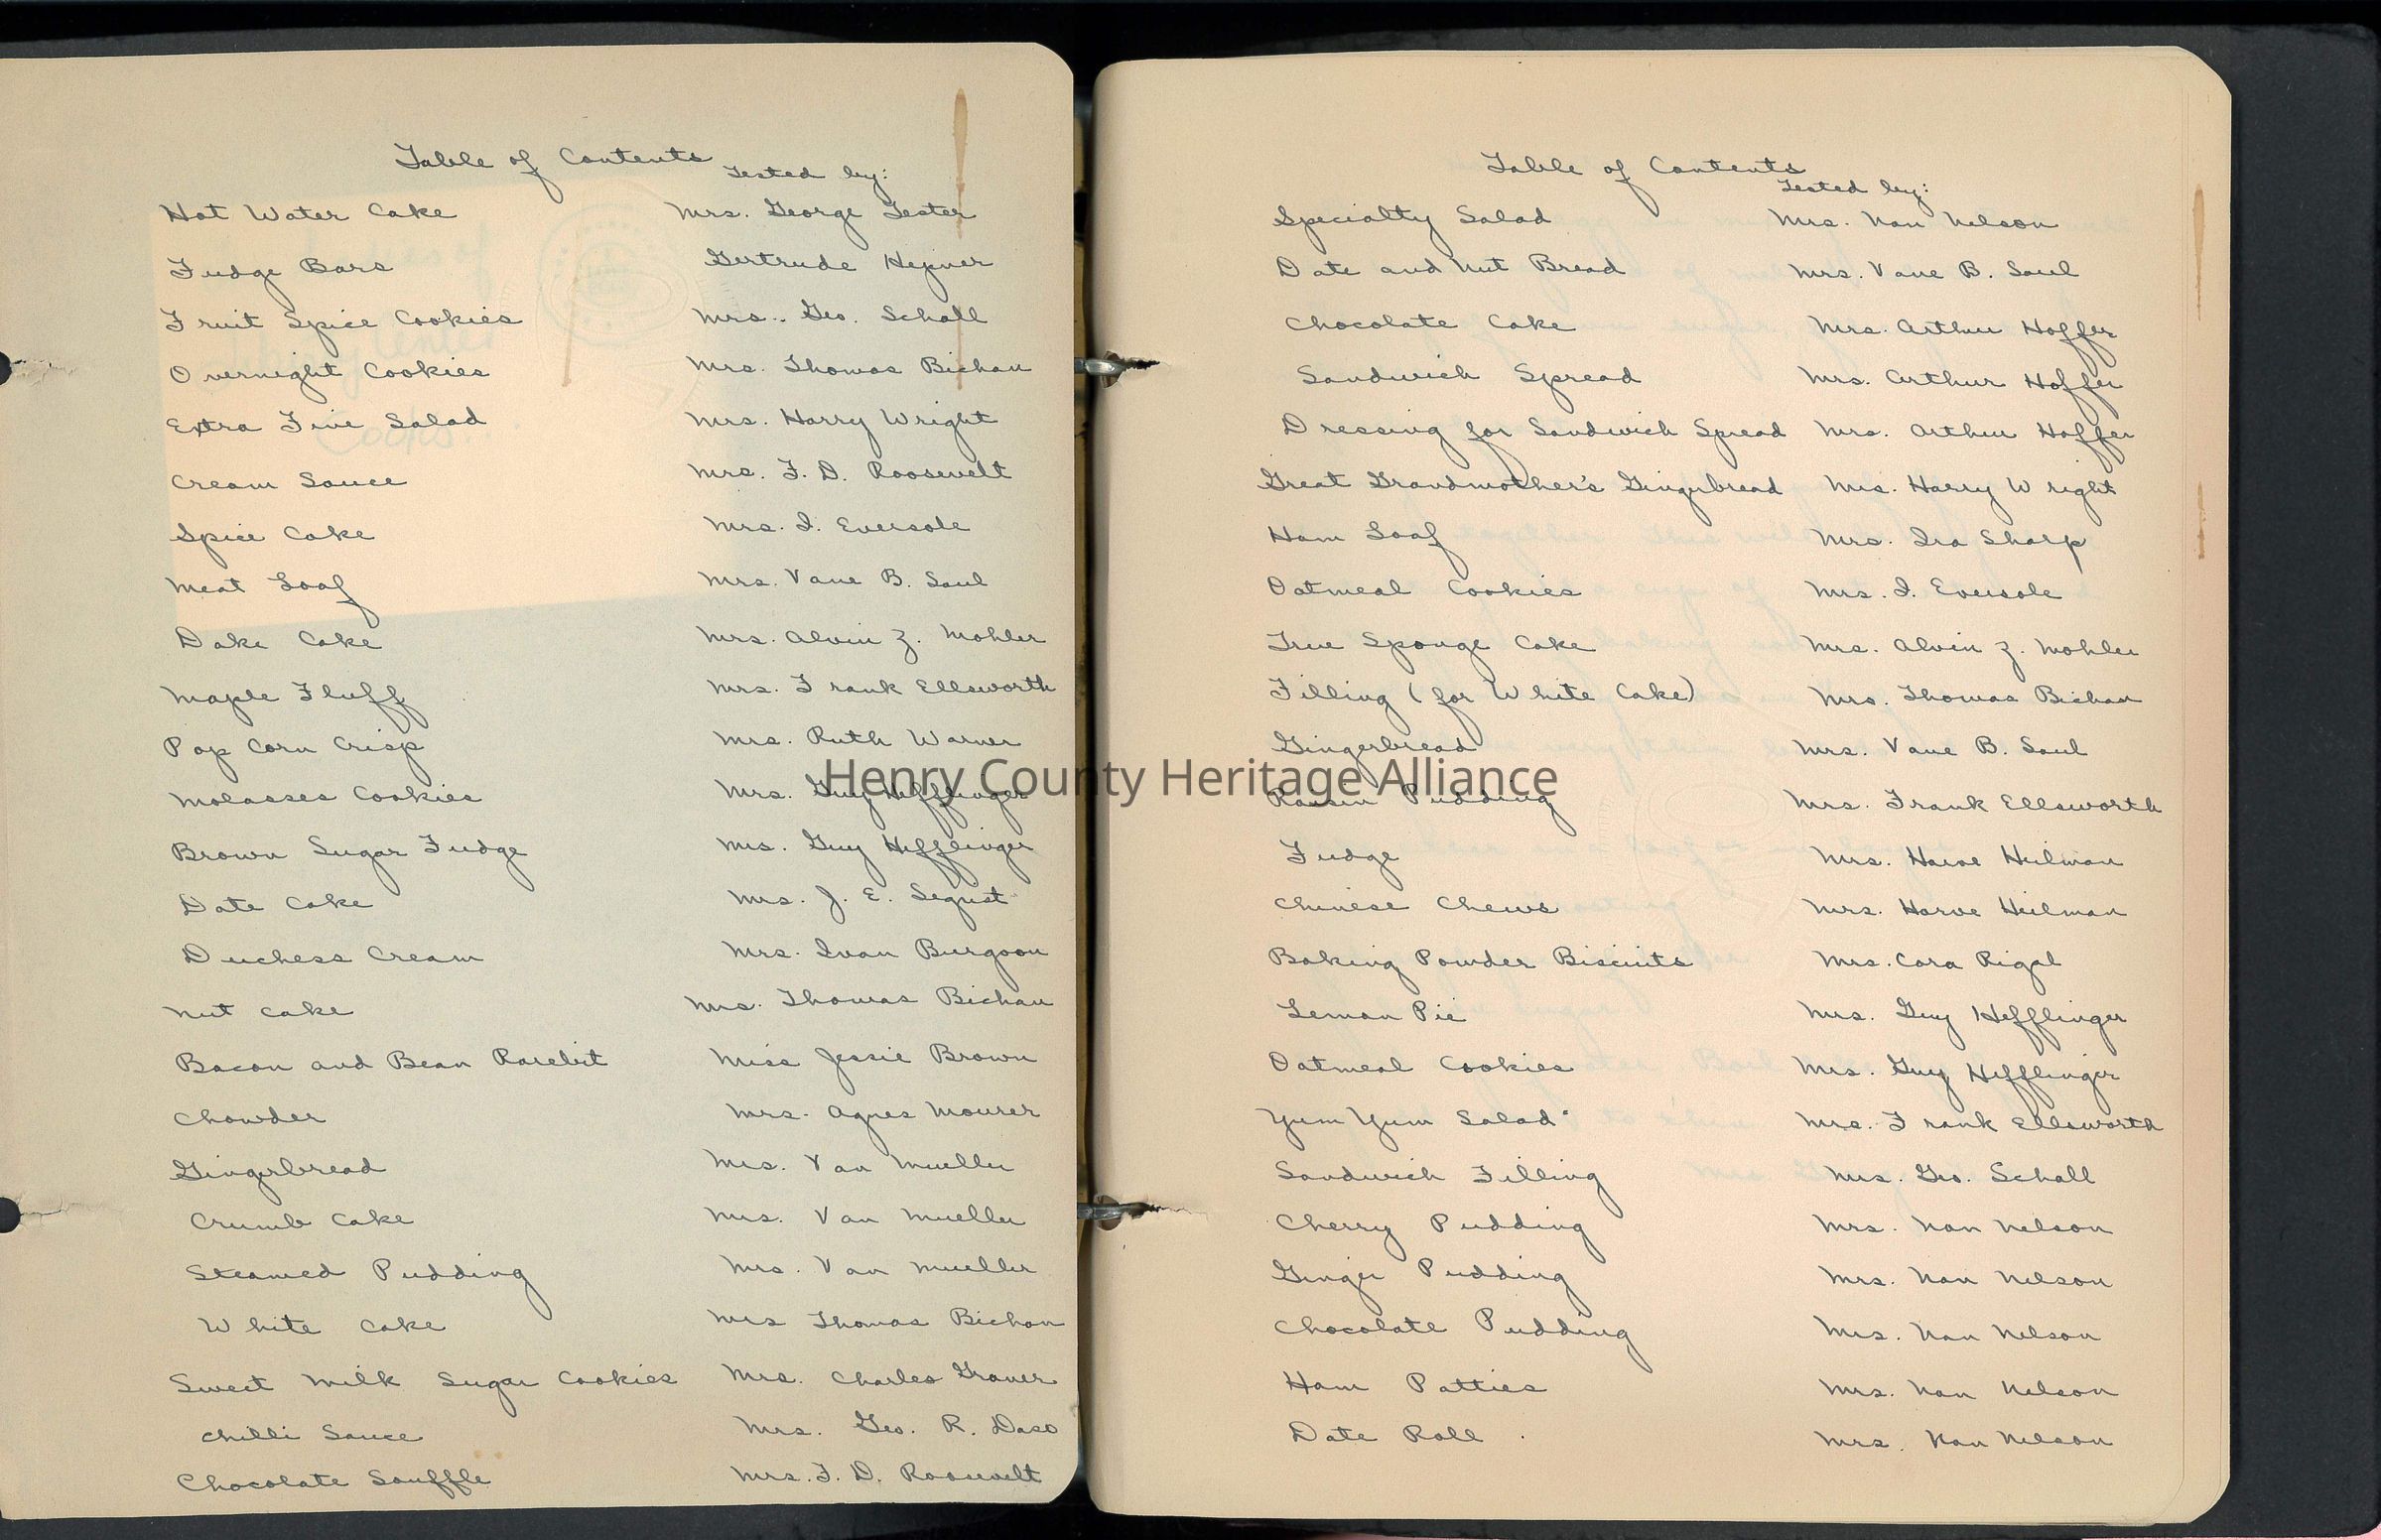 Table of Contents
Tested by:
Hot Water Cake Mrs. George Tester
Fudge Bars Gertrude Hepner
Fruit Spice Cookies Mrs. Geo. Schall
Overnight Cookies Mrs. Thomas Bichan
Extra Fine Salad Mrs. Harry Wright
Cream Sauce Mrs. F. D. Roosevelt
Spice Cake Mrs. I. Eversole
Meat Loaf Mrs. Vane B. Saul
Dake Cake Mrs. Alvin Z. Mohler
Maple Fluff Mrs. Frank Ellsworth
Pop Corn Crisp Mrs. Ruth Warner
Molasses Cookies Mrs. Guy Hefflinger
Brown Sugar Fudge Mrs. Guy Hefflinger
Date Cake Mrs. J. E. Sequst
Duchess Cream Mrs. Ivan Burgoon
Nut Cake Mrs. Thomas Bichan
Bacon and Bean Rarebit Miss Jessie Brown
Chowder Mrs. Agnes Mourer
Gingerbread Mrs. Van Mueller
Crumb Cake Mrs. Van Mueller
Steamed Pudding Mrs. Van Mueller
White Cake Mrs Thomas Bichan
Sweet Milk Sugar Cookies Mrs. Charles Graner
Chilli Sauce Mrs. Geo. R. Daso
Chocolate Souffle Mrs. F. D. Roosevelt
Table of Contents
Tested by:
Specialty Salad Mrs. Nan Nelson
Date and Nut Bread Mrs. Vane B. Saul
Chocolate Cake Mrs. Arthur Hoffer
Sandwich Spread Mrs. Arthur Hoffer
Dressing for Sandwich Spread Mrs. Arthur Hoffer
Great Grandmother's Gingerbread Mrs. Harry Wright
Ham Loaf Mrs. Ira Sharp
Oatmeal Cookies Mrs. I. Eversole
True Sponge Cake Mrs. Alvin Z. Mohler
Filling (for White Cake) Mrs. Thomas Bichan
Gingerbread Mrs. Vane B. Saul
Henry County Heritage Alliance
Raisin Pudding Mrs. Frank Ellsworth
Fudge Mrs. Harve Heilman
Chinese Chews Mrs. Harve Heilman
Baking Powder Biscuits Mrs. Cora Rigal
Lemon Pie Mrs. Guy Hefflinger
Oatmeal Cookies Mrs. Guy Hefflinger
Yum Yum Salad Mrs. Frank Ellsworth
Sandwich Filling Mrs. Geo. Schall
Cherry Pudding Mrs. Nan Nelson
Ginger Pudding Mrs. Nan Nelson
Chocolate Pudding Mrs. Nan Nelson
Ham Patties Mrs. Nan Nelson
Date Roll Mrs. Nan Nelson